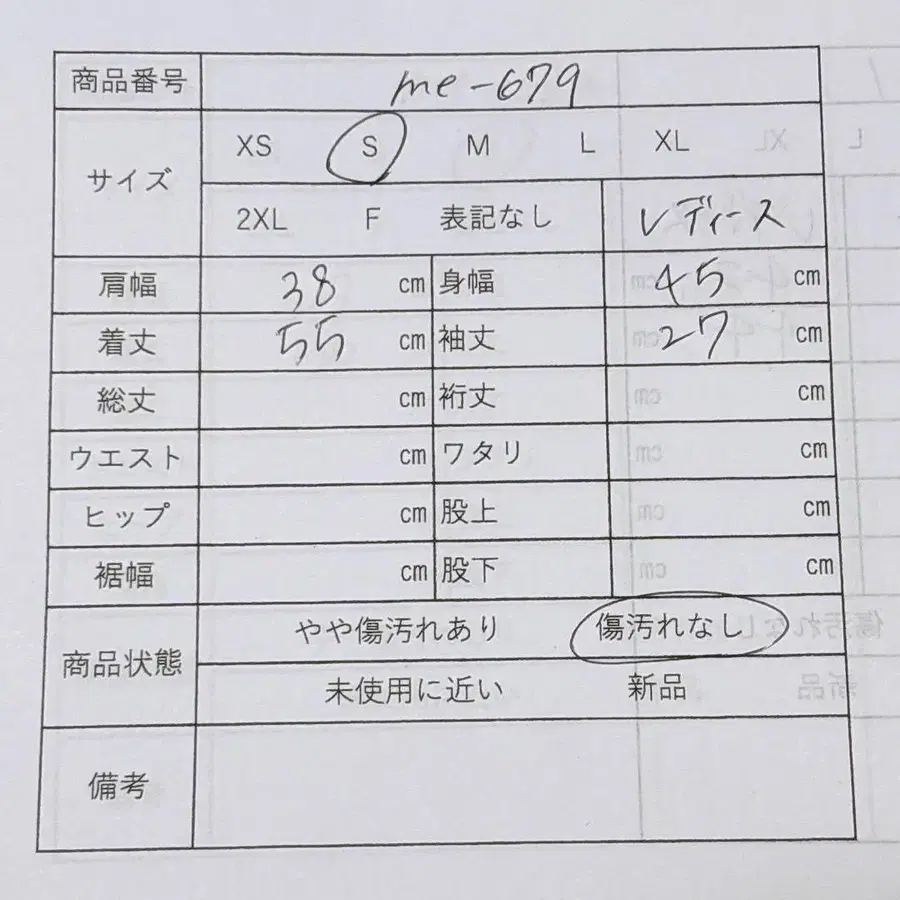 商品番号 me-679
サイズ XS S M L XL
2XL F 表記なし レディース
肩幅 38 cm 身幅 45 cm
着丈 55 cm 袖丈 27 cm
総丈 cm 裄丈 cm
ウエスト cm ワタリ cm
ヒップ cm 股上 cm
裾幅 cm 股下 cm
商品状態 やや傷汚れあり 傷汚れなし
未使用に近い 新品
備考